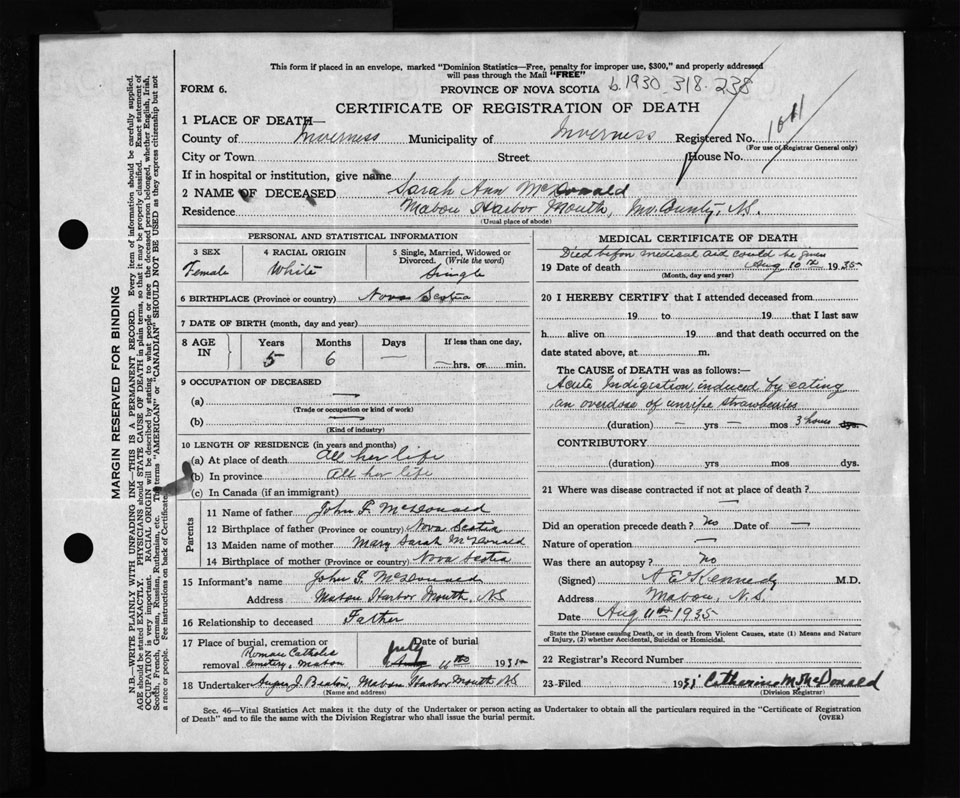 This form if placed in an envelope, marked "Dominion Statistics—Free, penalty for improper use, $300," and properly addressed
will pass through the Mail "FREE"
FORM 6. PROVINCE OF NOVA SCOTIA b.1930 318. 238
CERTIFICATE OF REGISTRATION OF DEATH
1 PLACE OF DEATH—
County of Inverness Municipality of Inverness Registered No.
(For use of Registrar General only)
City or Town Street House No.
If in hospital or institution, give name
2 NAME OF DECEASED Sarah Ann McDonald
Residence Mabou Harbor Mouth, Inv. County, N.S.
(Usual place of abode)
PERSONAL AND STATISTICAL INFORMATION
3 SEX 4 RACIAL ORIGIN 5 Single, Married, Widowed or
Divorced. (Write the word)
Female White Single
6 BIRTHPLACE (Province or country) Nova Scotia
7 DATE OF BIRTH (month, day and year)
8 AGE IN Years Months Days If less than one day,
5 6 — — hrs. or — min.
9 OCCUPATION OF DECEASED
(a) —
(Trade or occupation or kind of work)
(b) —
(Kind of industry)
10 LENGTH OF RESIDENCE (in years and months)
(a) At place of death All her life
(b) In province All her life
(c) In Canada (if an immigrant)
Parents
11 Name of father John F. McDonald
12 Birthplace of father (Province or country) Nova Scotia
13 Maiden name of mother Mary Sarah McDonald
14 Birthplace of mother (Province or country) Nova Scotia
15 Informant's name John F. McDonald
Address Mabou Harbor Mouth, NS
16 Relationship to deceased Father
17 Place of burial, cremation or Date of burial
Roman Catholic July
removal Cemetery, Mabou 11th 193
18 Undertaker Angus J. Beaton, Mabou Harbor Mouth NS
(Name and address)
MEDICAL CERTIFICATE OF DEATH
Died before medical aid could be given
19 Date of death Aug 10th 1935
(Month, day and year)
20 I HEREBY CERTIFY that I attended deceased from
19 to 19 that I last saw
h alive on 19 and that death occurred on the
date stated above, at m.
The CAUSE of DEATH was as follows:
Acute Indigestion, induced by eating
an overdose of unripe strawberries
(duration) — yrs — mos 3 hours dys.
CONTRIBUTORY
(duration) yrs mos dys.
21 Where was disease contracted if not at place of death?
—
Did an operation precede death? No Date of —
Nature of operation —
Was there an autopsy? No
(Signed) A E Kennedy M.D.
Address Mabou, N.S.
Date Aug 11th 1935
State the Disease causing Death, or in death from Violent Causes, state (1) Means and Nature
of Injury, (2) whether Accidental, Suicidal or Homicidal.
22 Registrar's Record Number
23 Filed 193 Catherine M McDonald
(Division Registrar)
Sec. 46—Vital Statistics Act makes it the duty of the Undertaker or person acting as Undertaker to obtain all the particulars required in the "Certificate of Registration
of Death" and to file the same with the Division Registrar who shall issue the burial permit. (OVER)
MARGIN RESERVED FOR BINDING
N.B.—WRITE PLAINLY WITH UNFADING INK—THIS IS A PERMANENT RECORD. Every item of information should be carefully supplied.
AGE should be stated EXACTLY. PHYSICIANS should STATE CAUSE OF DEATH in plain terms, so that it may be properly classified. Exact statement of
OCCUPATION is very important. RACIAL ORIGIN will be described by stating to what people or race the deceased person belonged, whether English, Irish,
Scotch, French, German, Russian, Ruthenian, etc. The terms "AMERICAN" or "CANADIAN" SHOULD NOT BE USED as they express citizenship but not
a race or people. See instructions on back of Certificate.